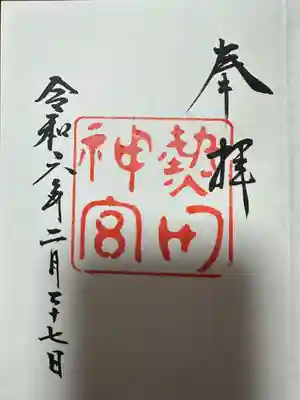 奉拝
熱田
神宮
令和六年二月二十七日